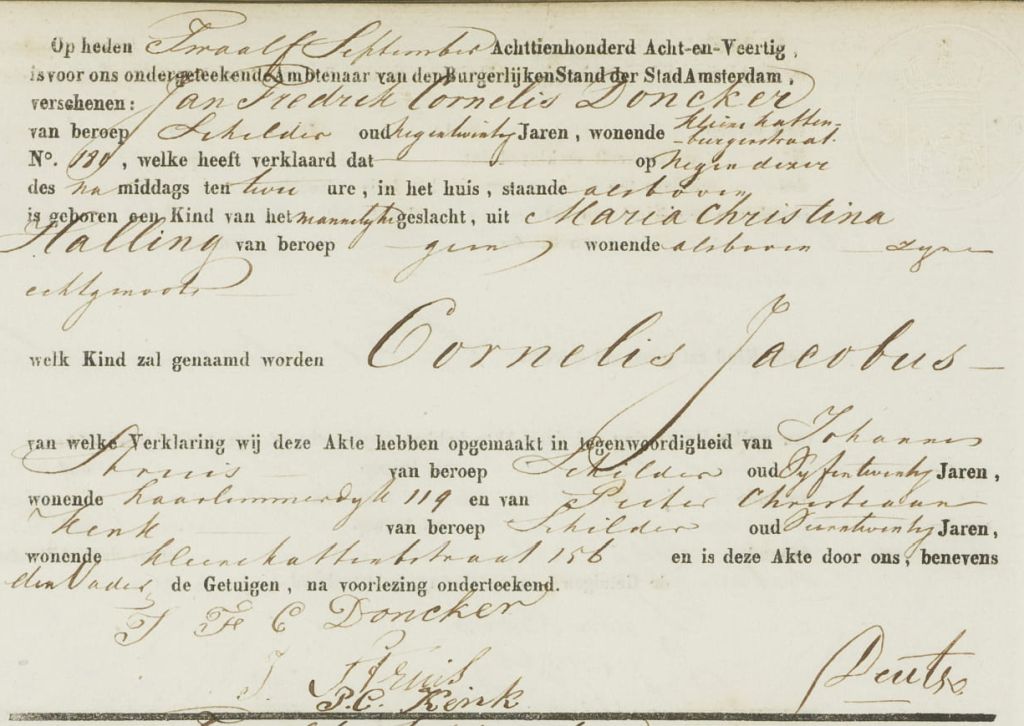 Op heden Twaalf September Achttienhonderd Acht-en-Veertig,
is voor ons ondergeteekende Ambtenaar van den Burgerlijken Stand der Stad Amsterdam,
verschenen: Jan Fredrik Cornelis Doncker
van beroep Schilder oud Negentwintig Jaren, wonende Kleine Katten-
burgerstraat
No. , welke heeft verklaard dat op Negen dezer
des na middags ten twee ure, in het huis, staande alsboven
is geboren een Kind van het mannelijk geslacht, uit Maria Christina
Halling van beroep geen wonende alsboven zyne
echtgenoote
welk Kind zal genaamd worden Cornelis Jacobus
van welke Verklaring wij deze Akte hebben opgemaakt in tegenwoordigheid van Johannes
Struis van beroep Schilder oud Vyfentwintig Jaren,
wonende Haarlemmerdyk 119 en van Pieter Christiaan
Kenk van beroep Schilder oud Jaren,
wonende Kleine Kattenbstraat 156 en is deze Akte door ons, benevens
den Vader de Getuigen, na voorlezing onderteekend.
J F C Doncker
J. Struis
P.C. Kenk